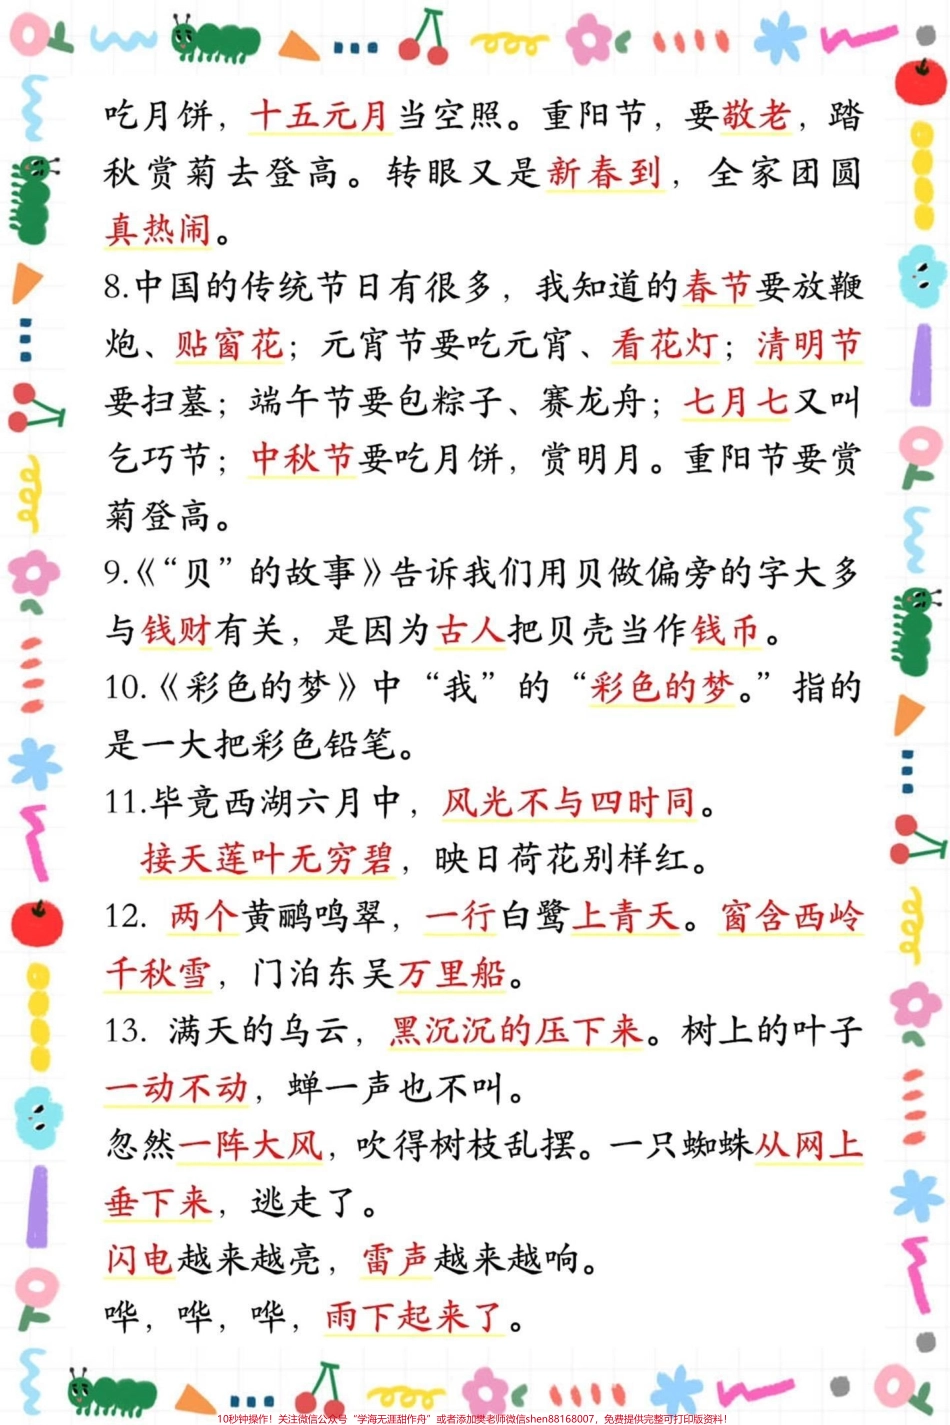 吃月饼，十五元月当空照。重阳节，要敬老，踏
秋赏菊去登高。转眼又是新春到，全家团圆
真热闹。
8.中国的传统节日有很多，我知道的春节要放鞭
炮、贴窗花；元宵节要吃元宵、看花灯；清明节
要扫墓；端午节要包粽子、赛龙舟；七月七又叫
乞巧节；中秋节要吃月饼，赏明月。重阳节要赏
菊登高。
9.《“贝”的故事》告诉我们用贝做偏旁的字大多
与钱财有关，是因为古人把贝壳当作钱币。
10.《彩色的梦》中“我”的“彩色的梦。”指的
是一大把彩色铅笔。
11.毕竟西湖六月中，风光不与四时同。
接天莲叶无穷碧，映日荷花别样红。
12. 两个黄鹂鸣翠，一行白鹭上青天。窗含西岭
千秋雪，门泊东吴万里船。
13. 满天的乌云，黑沉沉的压下来。树上的叶子
一动不动，蝉一声也不叫。
忽然一阵大风，吹得树枝乱摆。一只蜘蛛从网上
垂下来，逃走了。
闪电越来越亮，雷声越来越响。
哗，哗，哗，雨下起来了。
10秒钟操作！关注微信公众号“学海无涯甜作舟”或者添加樊老师微信shen88168007，免费提供完整可打印版资料！